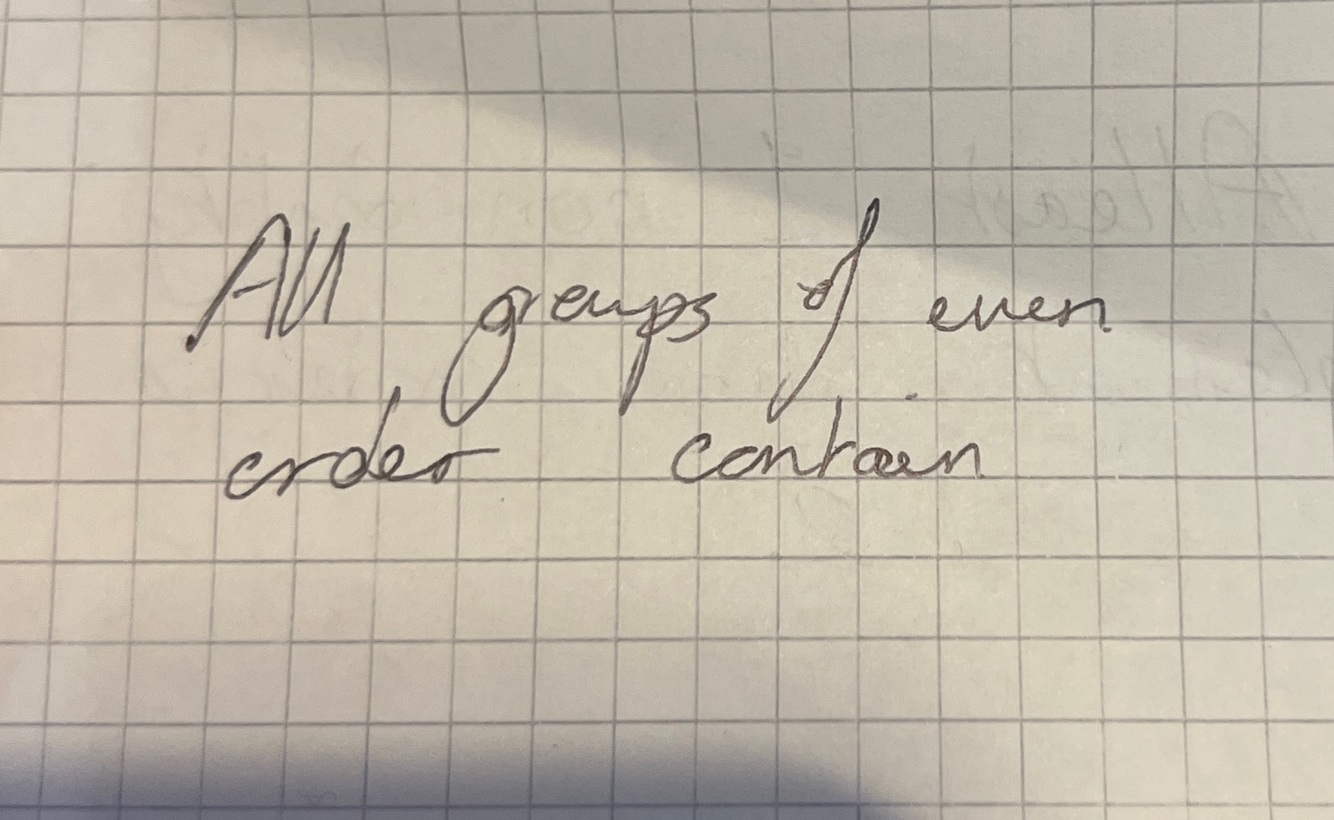 All groups of even
order contain